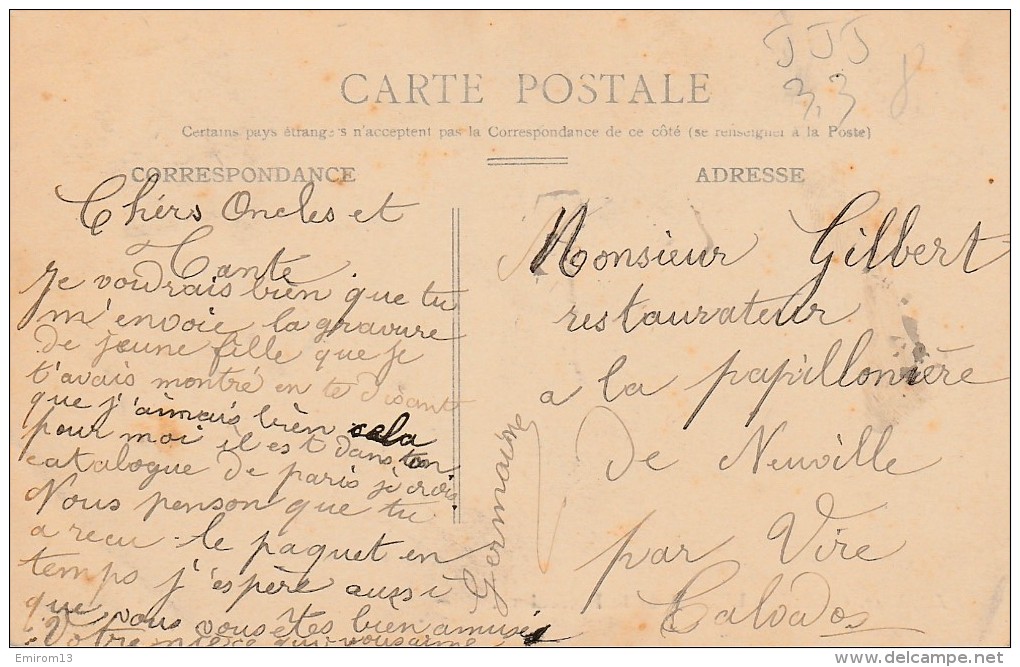 JJJ
3.3
8
CARTE POSTALE
Certains pays étrangers n'acceptent pas la Correspondance de ce côté (se renseigner à la Poste)
CORRESPONDANCE
Chérs Oncles et
Tante
Je voudrais bien que tu
m'envoie la gravure
de jeune fille que je
t'avais montré en te disant
que j'aimais bien cela
pour moi il est dans ton
catalogue de paris je crois
Nous penson que tu
a recu le paquet en
temps j'espère aussi
que vous vous êtes bien amusés
Votre nièce qui vous aime
Germaine
ADRESSE
Monsieur Gilbert
restaurateur
a la papillonière
de Neuville
par Vire
Calvados
Emirom13
delcampe.net